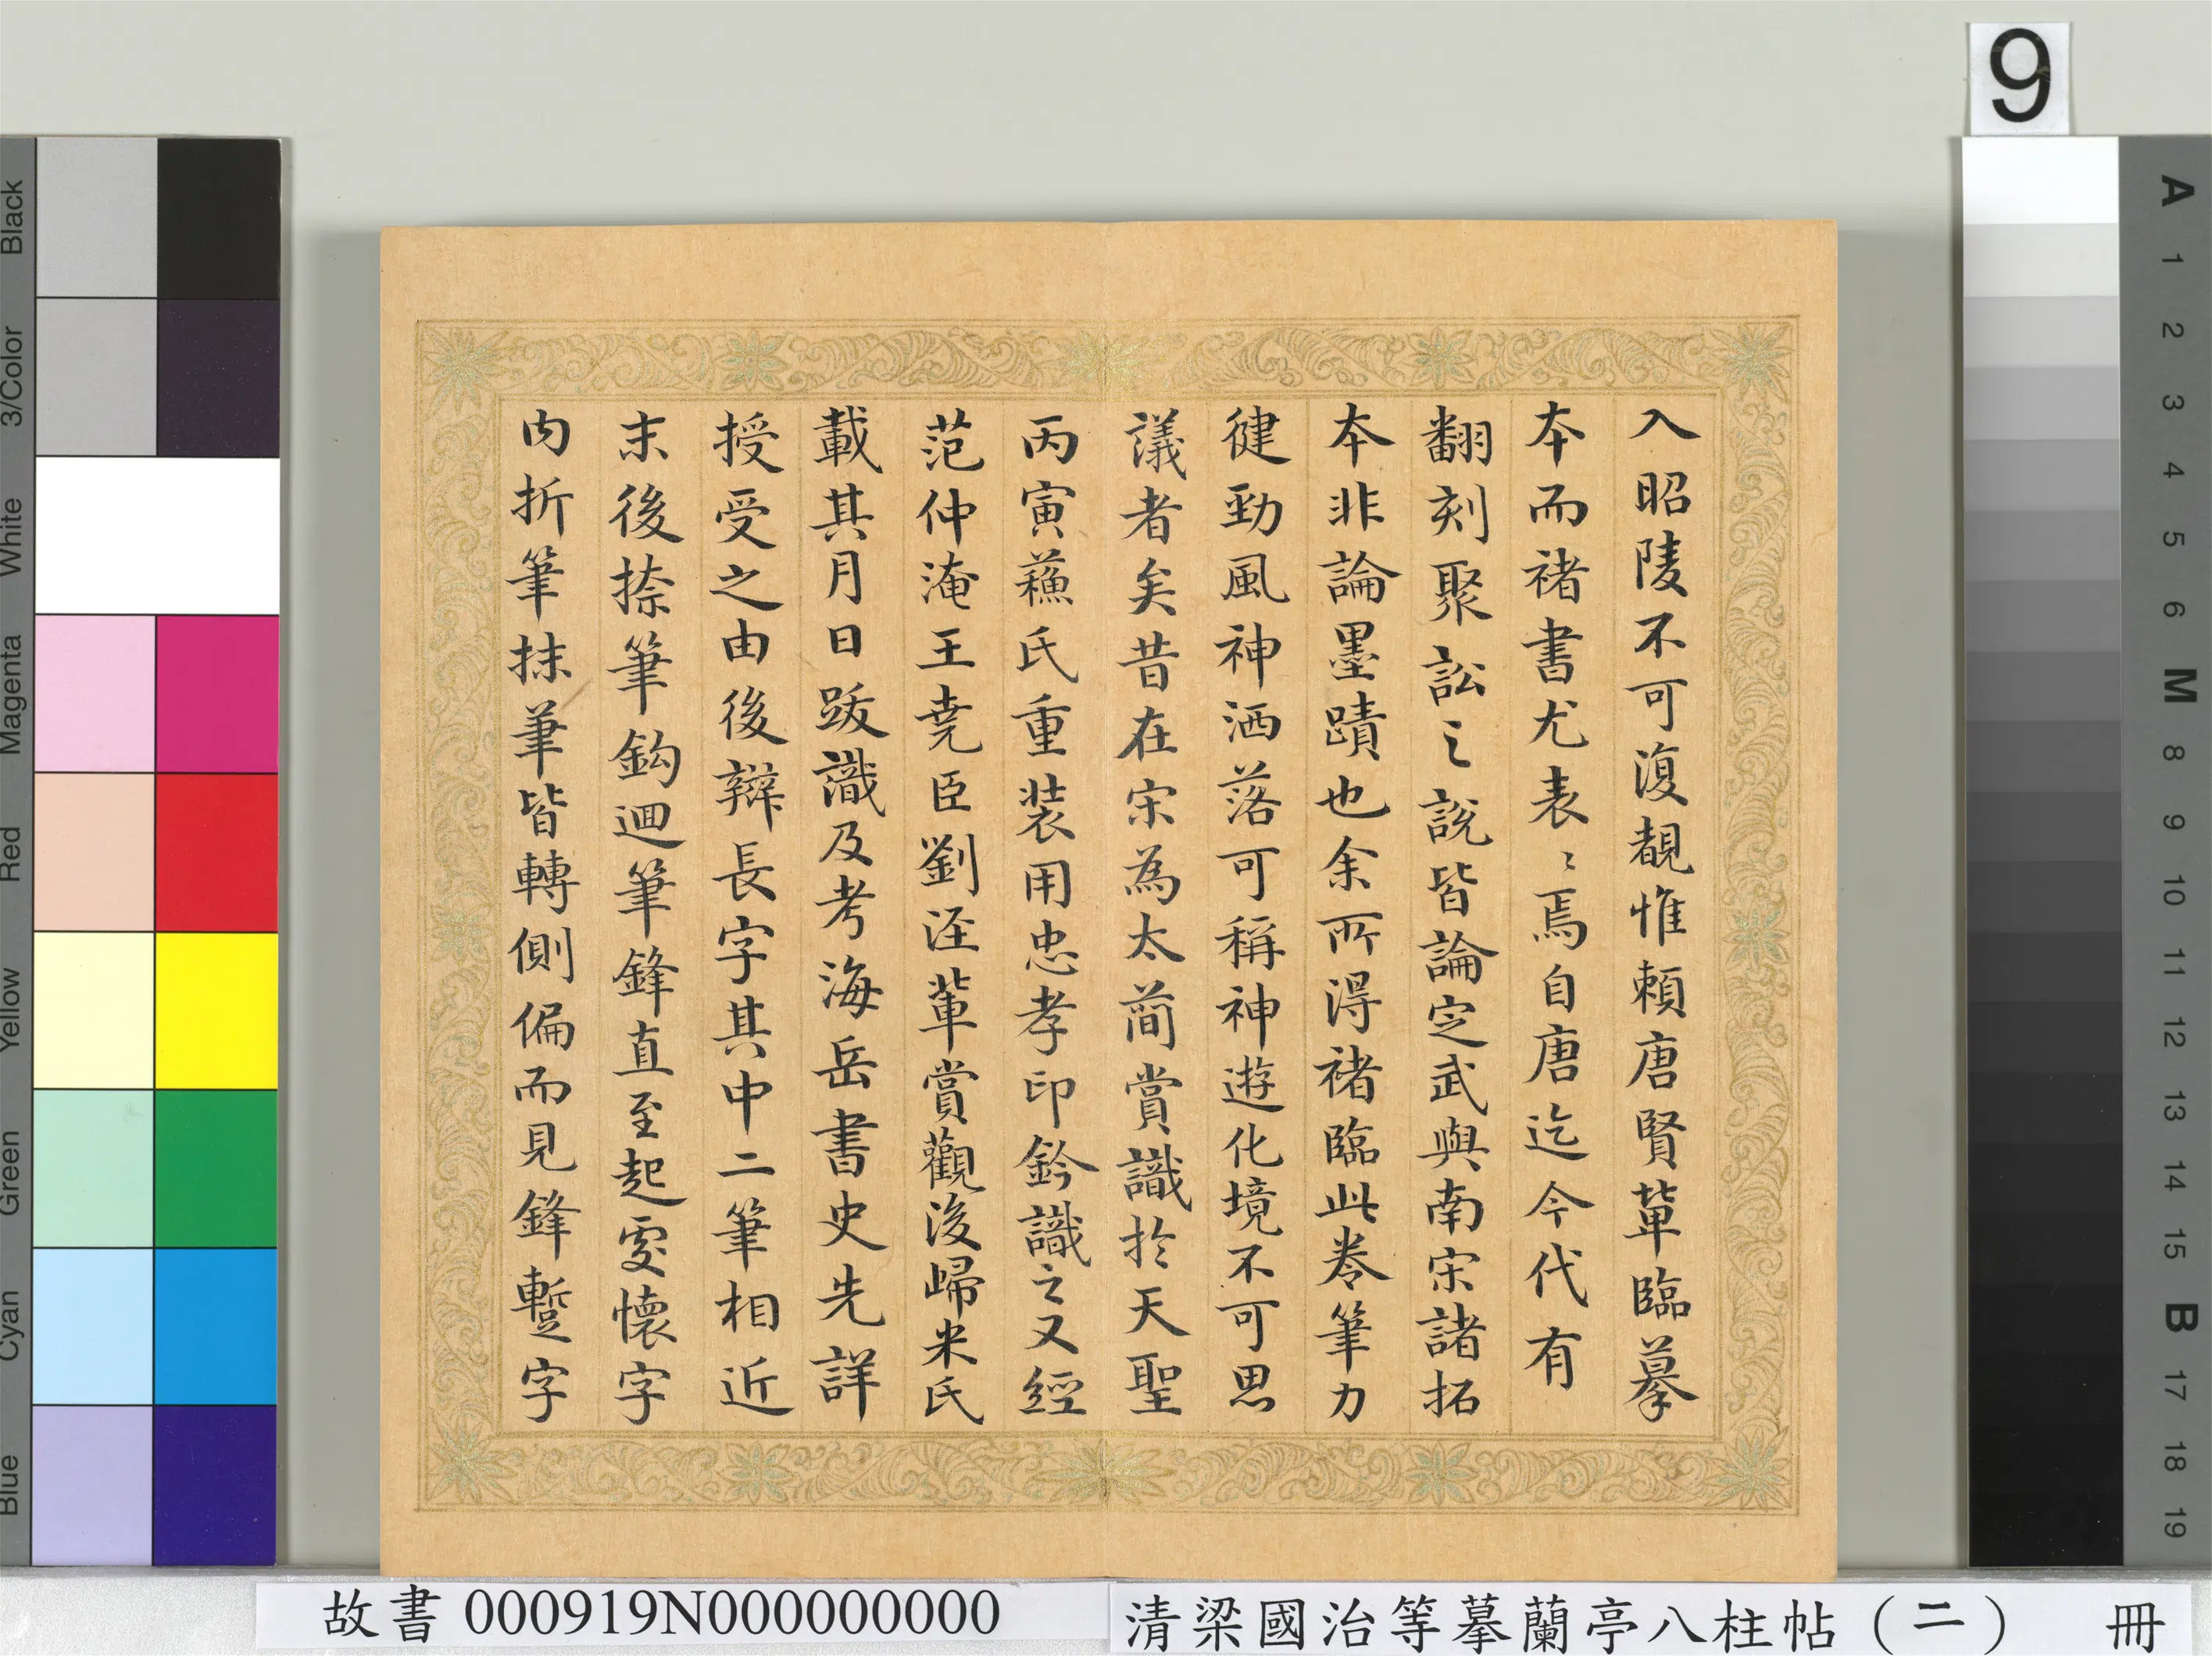 9
入昭陵不可復覩惟賴唐賢輩臨摹
本而褚書尤表〻焉自唐迄今代有
翻刻聚訟之說皆論定武與南宋諸拓
本非論墨蹟也余所得褚臨此卷筆力
健勁風神洒落可稱神遊化境不可思
議者矣昔在宋為太簡賞識於天聖
丙寅蘓氏重装用忠孝印鈐識之又經
范仲淹王堯臣劉涇輩賞觀後歸米氏
載其月日跋識及考海岳書史先詳
授受之由後辯長字其中二筆相近
末後捺筆鈎迴筆鋒直至起處懷字
内折筆抹筆皆轉側偏而見鋒蹔字
故書 000919N000000000
清梁國治等摹蘭亭八柱帖（二） 冊
Black
3/Color
White
Magenta
Red
Yellow
Green
Cyan
Blue
A
1
2
3
4
5
6
M
8
9
10
11
12
13
14
15
B
17
18
19